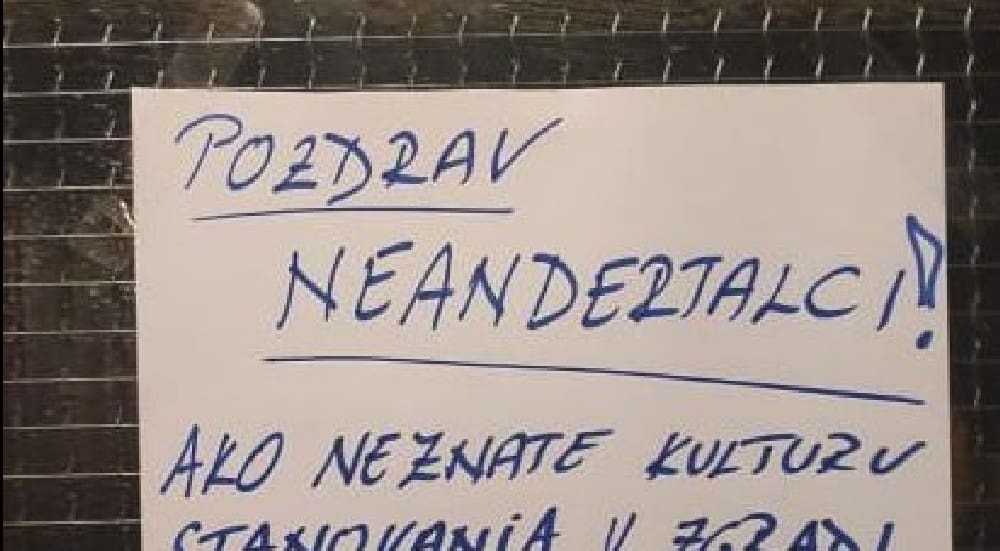 POZDRAV
NEANDERTALCI!
AKO NEZNATE KULTURU
STANOVANJA U ZGRADI